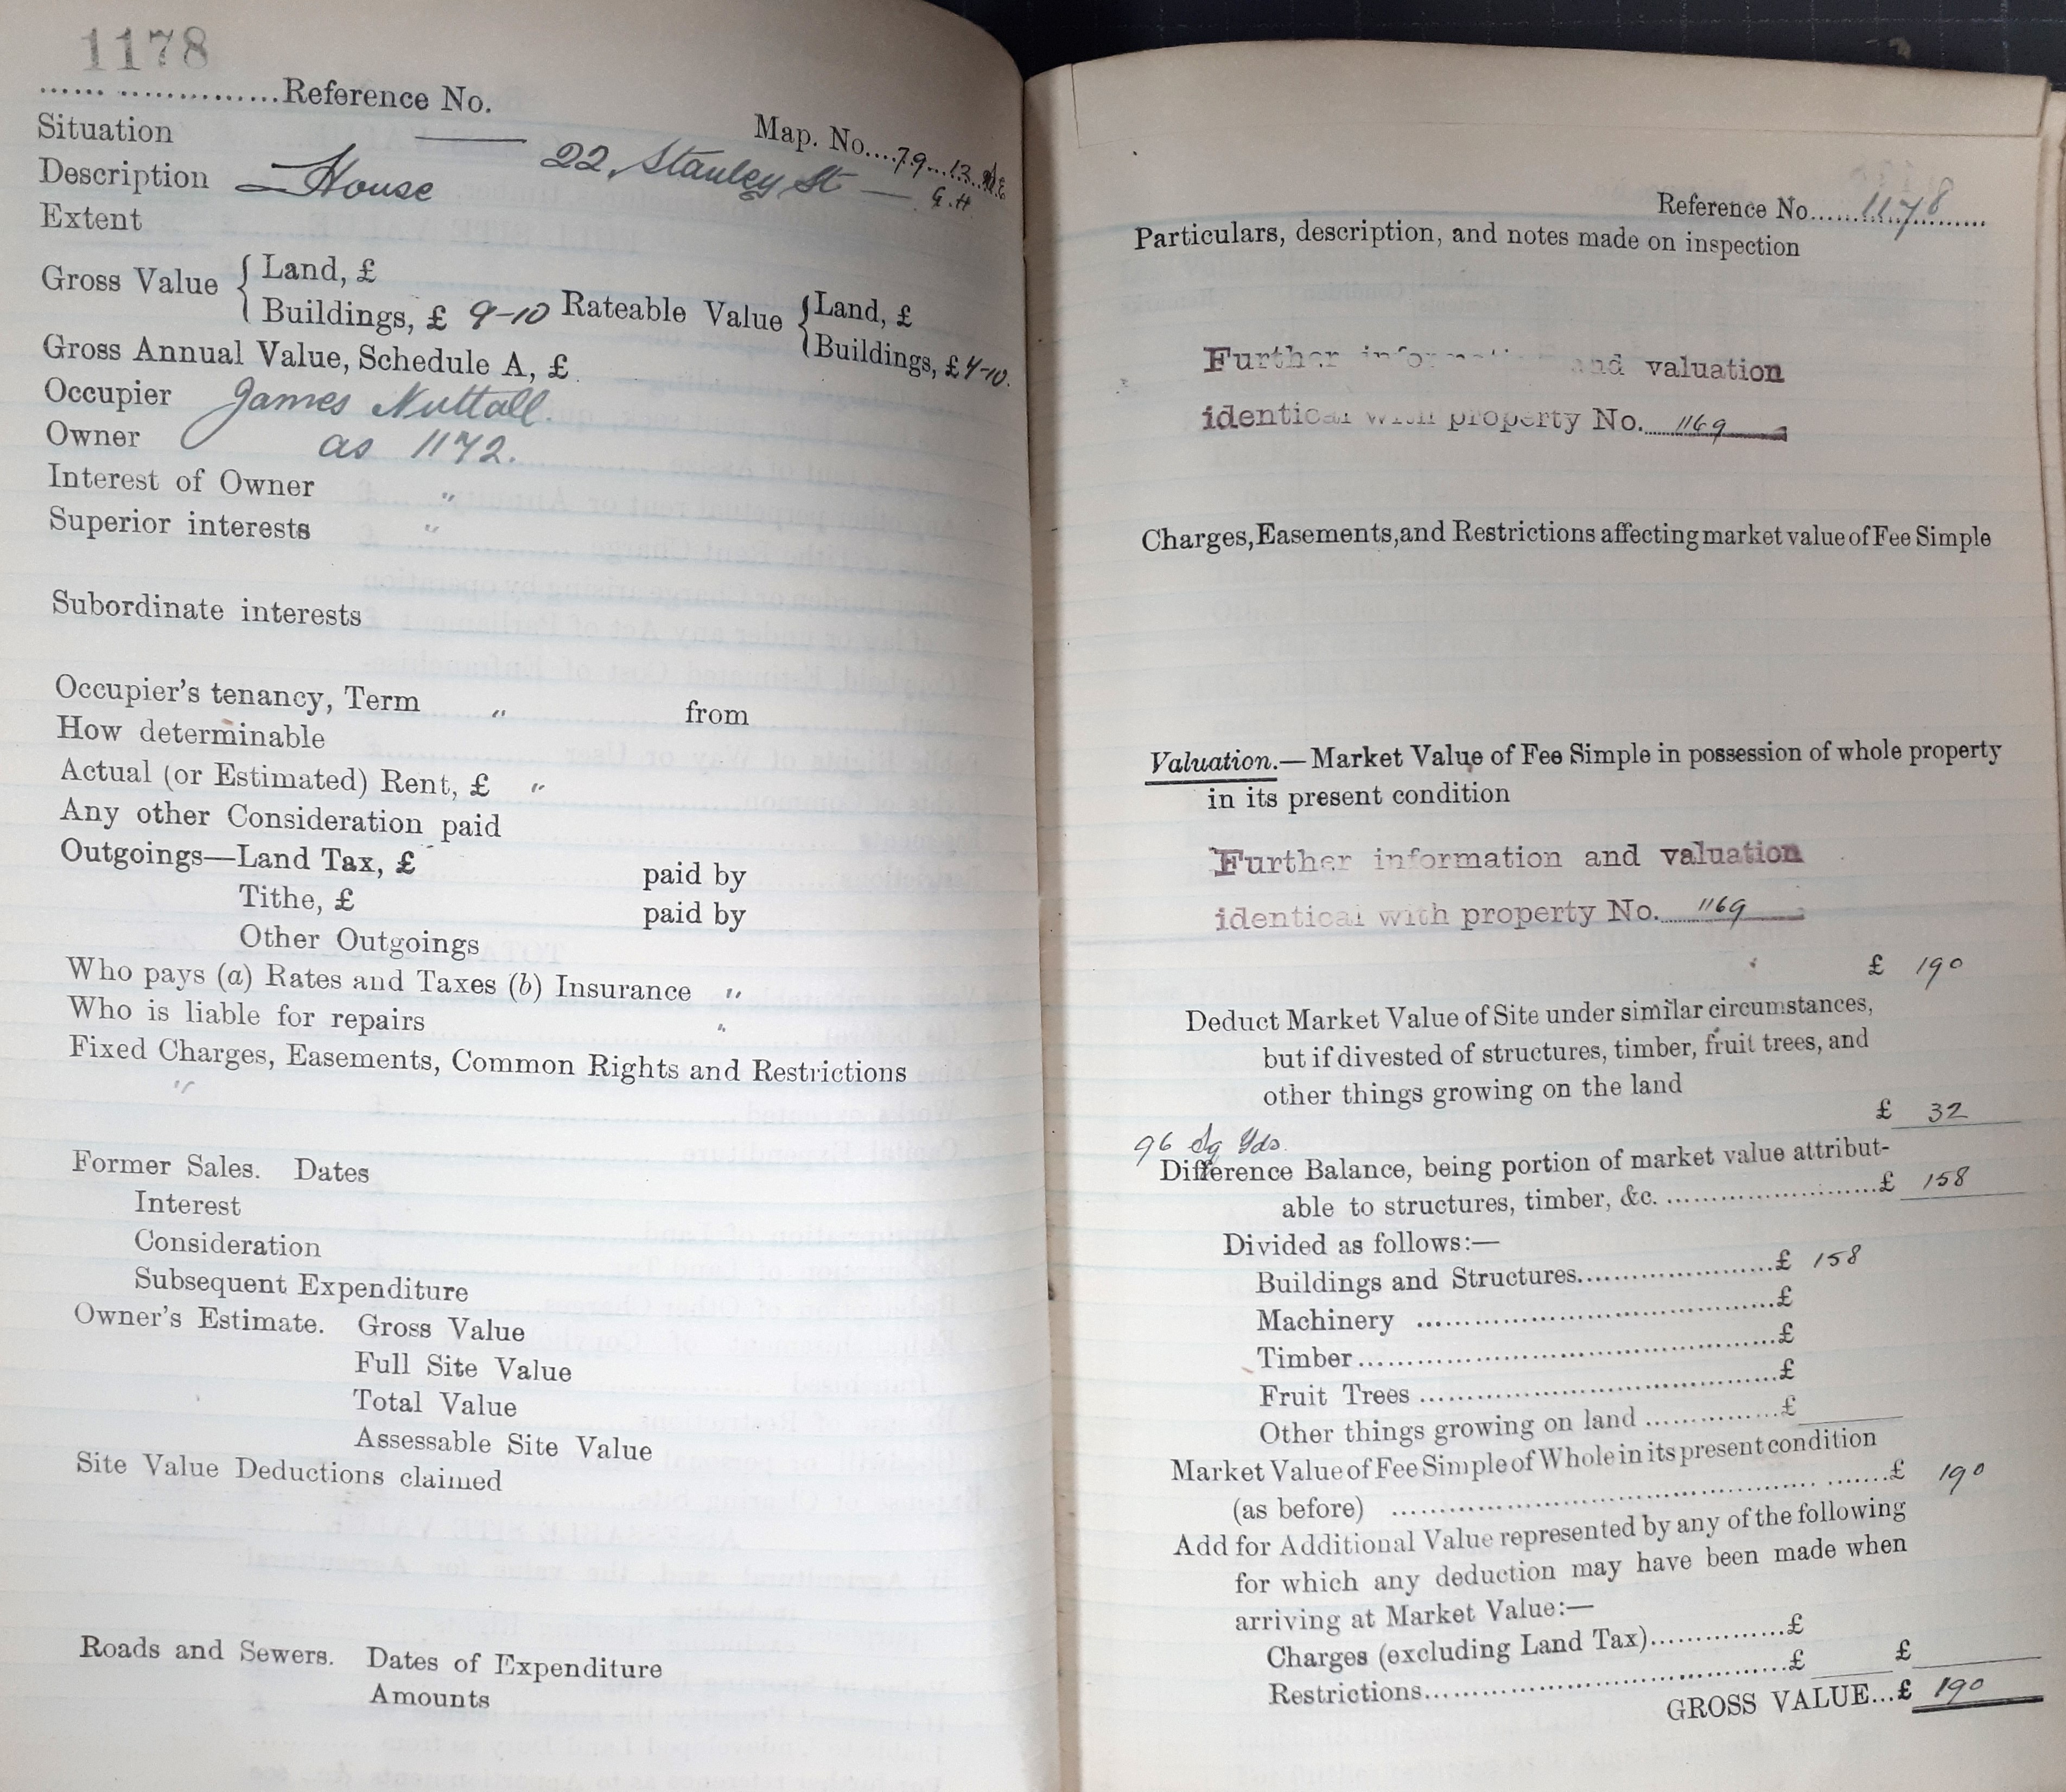 1178
.....................Reference No.
Map. No....79...13.
Situation
22, Stanley St — G.H.
Description — House
Extent
Gross Value { Land, £
Buildings, £ 9-10 Rateable Value { Land, £
Buildings, £
Gross Annual Value, Schedule A, £
Occupier James Nuttall.
Owner as 1172.
Interest of Owner "
Superior interests "
Subordinate interests
Occupier's tenancy, Term " from
How determinable
Actual (or Estimated) Rent, £ "
Any other Consideration paid
Outgoings—Land Tax, £ paid by
Tithe, £ paid by
Other Outgoings
Who pays (a) Rates and Taxes (b) Insurance "
Who is liable for repairs "
Fixed Charges, Easements, Common Rights and Restrictions
"
Former Sales. Dates
Interest
Consideration
Subsequent Expenditure
Owner's Estimate. Gross Value
Full Site Value
Total Value
Assessable Site Value
Site Value Deductions claimed
Roads and Sewers. Dates of Expenditure
Amounts
Reference No......1178......
Particulars, description, and notes made on inspection
Further information and valuation
identical with property No. 1169
Charges, Easements, and Restrictions affecting market value of Fee Simple
Valuation.—Market Value of Fee Simple in possession of whole property
in its present condition
Further information and valuation
identical with property No. 1169
£ 190
Deduct Market Value of Site under similar circumstances,
but if divested of structures, timber, fruit trees, and
other things growing on the land
£ 32
96 Sq Yds.
Difference Balance, being portion of market value attribut-
able to structures, timber, &c. ........................£ 158
Divided as follows:—
Buildings and Structures......................£ 158
Machinery ........................................£
Timber..............................................£
Fruit Trees ........................................£
Other things growing on land ...............£
Market Value of Fee Simple of Whole in its present condition
(as before) ..................................................£ 190
Add for Additional Value represented by any of the following
for which any deduction may have been made when
arriving at Market Value:—
Charges (excluding Land Tax)...............£
Restrictions........................................£ £
GROSS VALUE...£ 190